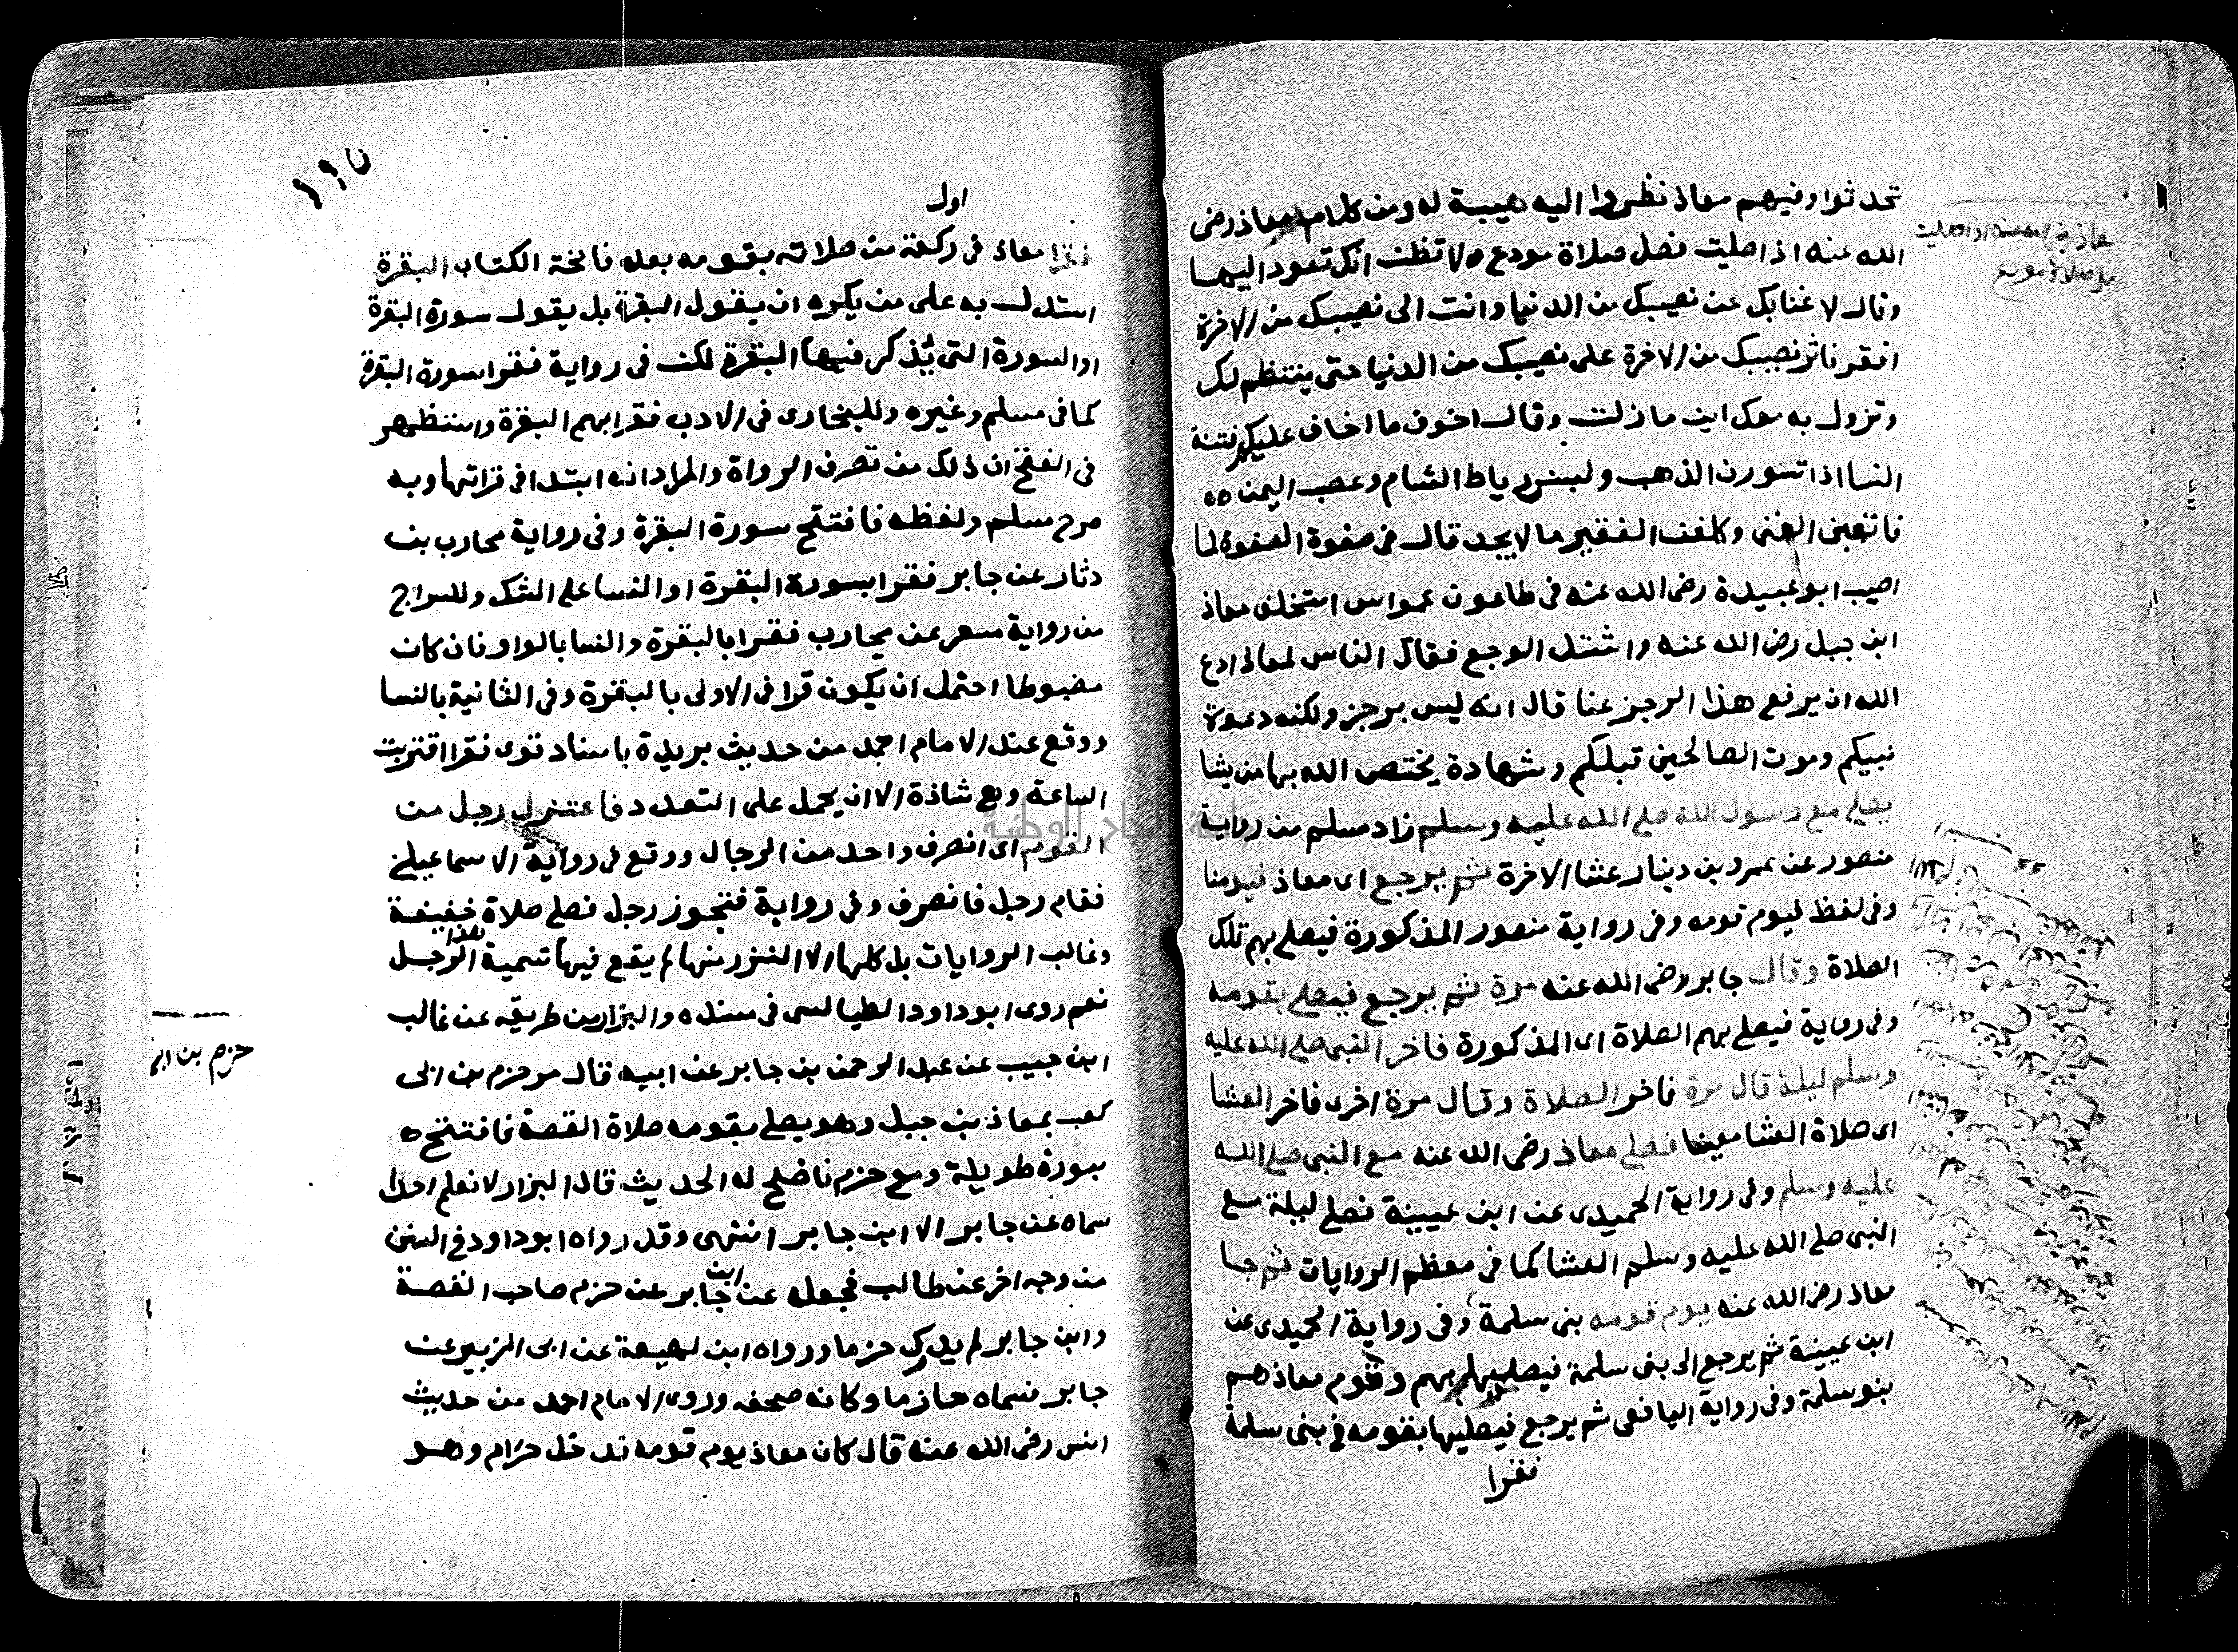 تحدثوا وفيهم معاذ نظروا اليه هيبة له ومن كلام معاذ رضى
الله عنه اذا صليت فصل صلاة مودع ولا تظن انك تعود اليها
وقال لا غنا بك عن نصيبك من الدنيا وانت الى نصيبك من الاخرة
افقر فاثر نصيبك من الاخرة على نصيبك من الدنيا حتى ينتظم لك
وتزول به معك اين ما زلت وقال اخوف ما اخاف عليكم فتنة
النسا اذا تسورن الذهب ولبسن رياط الشام وعصب اليمن
فاتعبن الغنى وكلفن الفقير ما لا يجد قال فى صفوة الصفوة لما
اصيب ابو عبيدة رضى الله عنه فى طاعون عمواس استخلف معاذ
ابن جبل رضى الله عنه واشتد الوجع فقال الناس لمعاذ ادع
الله ان يرفع هذا الرجز عنا قال انه ليس برجز ولكنه دعوة
نبيكم وموت الصالحين قبلكم وشهادة يختص الله بها من يشا
يصلى مع رسول الله صلى الله عليه وسلم زاد مسلم من رواية
منصور عن عمرو بن دينار عشا الاخرة ثم يرجع اى معاذ ليومنا
وفى لفظ ليوم قومه وفى رواية منصور المذكورة فيصلى بهم تلك
الصلاة وقال جابر رضى الله عنه مرة ثم يرجع فيصلى بقومه
وفى رواية فيصلى بهم الصلاة اى المذكورة فاخر النبى صلى الله عليه
وسلم ليلة قال مرة فاخر الصلاة وقال مرة اخرى فاخر العشا
اى صلاة العشا فصلى معاذ رضى الله عنه مع النبى صلى الله
عليه وسلم وفى رواية الحميدى عن ابن عيينة فصلى ليلة مع
النبى صلى الله عليه وسلم العشا كما فى معظم الروايات ثم جا
معاذ رضى الله عنه يوم قومه بنى سلمة وفى رواية الحميدى عن
ابن عيينة ثم يرجع الى بنى سلمة فيصليها بهم وقوم معاذ هم
بنو سلمة وفى رواية الشافعى ثم يرجع فيصليها بقومه فى بنى سلمة
فقرا
معاذ رضى الله عنه اذا صليت
صل صلاة مودع
١١٥
اول
فقرا معاذ فى ركعة من صلاته بقومه بعد فاتحة الكتاب البقرة
استدل به على من يكره ان يقول البقرة بل يقول سورة البقرة
او السورة التى يذكر فيها البقرة لكن فى رواية فقرا سورة البقرة
كما فى مسلم وغيره وللبخارى فى الادب فقرا بهم البقرة واستظهر
فى الفتح ان ذلك من تصرف الرواة والمراد انه ابتدا فى قراتها وبه
صرح مسلم ولفظه فافتتح سورة البقرة وفى رواية محارب بن
دثار عن جابر فقرا بسورة البقرة او النسا على الشك وللسراج
من رواية مسعر عن محارب فقرا بالبقرة والنسا بالواو فان كان
مضبوطا احتمل ان يكون قرا فى الاولى بالبقرة وفى الثانية بالنسا
ووقع عند الامام احمد من حديث بريدة باسناد قوى فقرا اقتربت
الساعة وهى شاذة الا ان يحمل على التعدد فاعتزل رجل من
القوم اى انصرف واحد من الرجال ووقع فى رواية الاسماعيلى
فقام رجل فانصرف وفى رواية فتجوز رجل فصلى صلاة خفيفة
وغالب الروايات بل كلها الا النزر منها لم يقع فيها تسمية هذا الرجل
نعم روى ابو داود الطيالسى فى مسنده والبزار من طريقه عن طالب
ابن حبيب عن عبد الرحمن بن جابر عن ابيه قال مر حزم بن ابى
كعب بمعاذ بن جبل وهو يصلى بقومه صلاة القصة فافتتح
بسورة طويلة ومع حزم ناضح له الحديث قال البزار لا نعلم احدا
سماه عن جابر الا ابن جابر انتهى وقد رواه ابو داود فى السنن
من وجه اخر عن طالب فجعله عن ابن جابر عن حزم صاحب القصة
وابن جابر لم يدرك حزما ورواه ابن لهيعة عن ابى الزبير عن
جابر فسماه حازما وكانه صحفه وروى الامام احمد من حديث
انس رضى الله عنه قال كان معاذ يوم قومه فدخل حرام وهو
حزم بن ابى